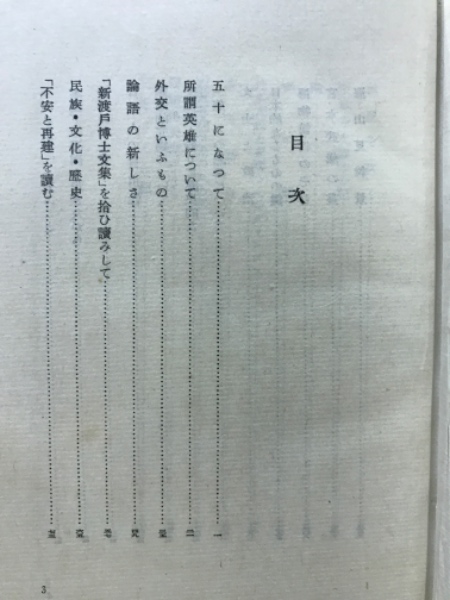 目次
五十になつて…………一
所謂英雄について
外交といふもの
論語の新しさ
「新渡戶博士文集」を拾ひ讀みして
民族・文化・歷史
「不安と再建」を讀む
3
1